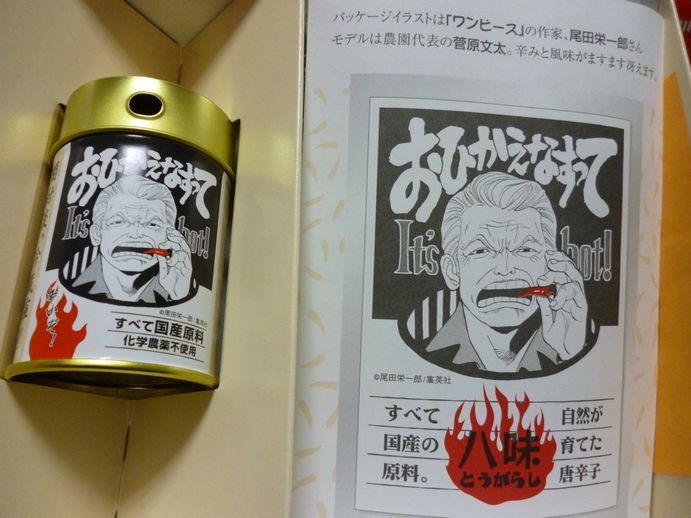 パッケージイラストは「ワンピース」の作家、尾田栄一郎さん
モデルは農園代表の菅原文太。辛みと風味がますます冴えます。
おひかえなすって
It's hot!
©尾田栄一郎/集英社
すべて
国産の
原料。
八味
とうがらし
自然が
育てた
唐辛子
おひかえなすって
It's hot!
辛いぞー!
©尾田栄一郎/集英社
すべて国産原料
化学農薬不使用